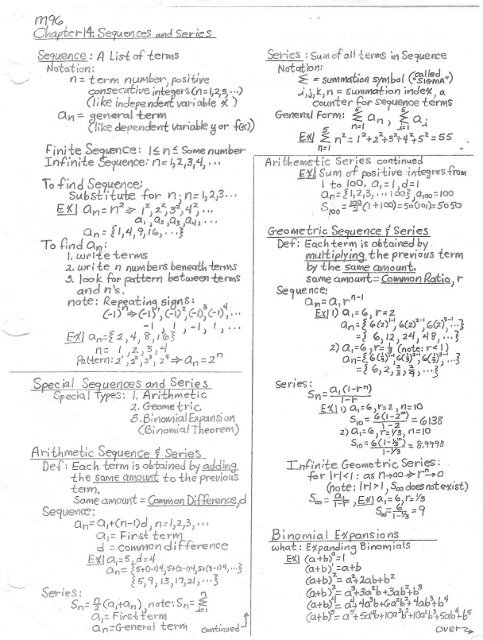 M96
Chapter 14: Sequences and Series
Sequence: A List of terms
Notation:
n = term number, positive
consecutive integers (n=1,2,3,...)
(like independent variable x)
an = general term
(like dependent variable y or f(x))
Finite Sequence: 1 ≤ n ≤ some number
Infinite Sequence: n = 1,2,3,4,...
To find Sequence:
Substitute for n; n=1,2,3...
EX| an = n² ⇒ 1², 2², 3², 4², ...
a₁, a₂, a₃, a₄, ...
an = {1,4,9,16,...}
To find an:
1. write terms
2. write n numbers beneath terms
3. look for pattern between terms
and n's.
note: Repeating signs:
(-1)ⁿ ⇒ (-1)¹, (-1)², (-1)³, (-1)⁴, ...
-1, 1, -1, 1, ...
EX| an = {2, 4, 8, 16}
n = 1, 2, 3, 4
Pattern: 2¹, 2², 2³, 2⁴ ⇒ an = 2ⁿ
Special Sequences and Series
Special Types: 1. Arithmetic
2. Geometric
3. Binomial Expansion
(Binomial Theorem)
Arithmetic Sequence & Series
Def: Each term is obtained by adding
the same amount to the previous
term.
Same amount = Common Difference, d
Sequence:
an = a₁+(n-1)d, n=1,2,3,...
a₁ = First term
d = common difference
EX| a₁=5, d=4
an = {5+(1-1)4, 5+(2-1)4, 5+(3-1)4, ...}
{5, 9, 13, 17, 21, ...}
Series:
Sn = n/2 (a₁+an), note: Sn =
a₁ = First term
an = General term
continued →
Series: Sum of all terms in Sequence
Notation:
Σ = summation symbol (called "SIGMA")
i,j,k,n = summation index, a
counter for sequence terms
General Form: Σ n=1 an, Σ i=1 ai
EX| 5 Σ n=1 n² = 1²+2²+3²+4²+5² = 55
Arithmetic Series continued
EX| Sum of positive integres from
1 to 100. a₁=1, d=1
an = {1,2,3,...100}, a100=100
S100 = 100/2 (1+100) = 50(101) = 5050
Geometric Sequence & Series
Def: Each term is obtained by
multiplying the previous term
by the same amount.
same amount = Common Ratio, r
Sequence:
an = a₁rⁿ⁻¹
EX| 1) a₁=6, r=2
an = {6(2)¹⁻¹, 6(2)²⁻¹, 6(2)³⁻¹, ...}
= {6, 12, 24, 48, ...}
2) a₁=6, r=1/3 (note: r<1)
an = {6(1/3)¹⁻¹, 6(1/3)²⁻¹, 6(1/3)³⁻¹, ...}
= {6, 2, 2/3, 2/9, ...}
Series:
Sn = a₁(1-rⁿ)/1-r
EX| 1) a₁=6, r=2, n=10
S10 = 6(1-2¹⁰)/1-2 = 6138
2) a₁=6, r=1/3, n=10
S10 = 6(1-1/3¹⁰)/1-1/3 = 8.9998
Infinite Geometric Series:
for |r|<1: as n→∞ ⇒ rⁿ→0
(note: |r|>1, S∞ does not exist)
S∞ = a₁/1-r, EX| a₁=6, r=1/3
S∞ = 6/1-1/3 = 9
Binomial Expansions
what: Expanding Binomials
EX| (a+b)⁰=1
(a+b)¹=a+b
(a+b)²=a²+2ab+b²
(a+b)³=a³+3a²b+3ab²+b³
(a+b)⁴=a⁴+4a³b+6a²b²+4ab³+b⁴
(a+b)⁵=a⁵+5a⁴b+10a³b²+10a²b³+5ab⁴+b⁵
over →